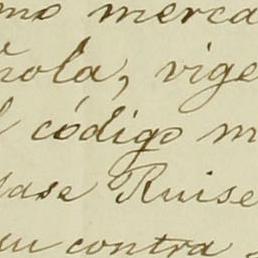 mo merca
ñola, vige
código m
Ruise
contra